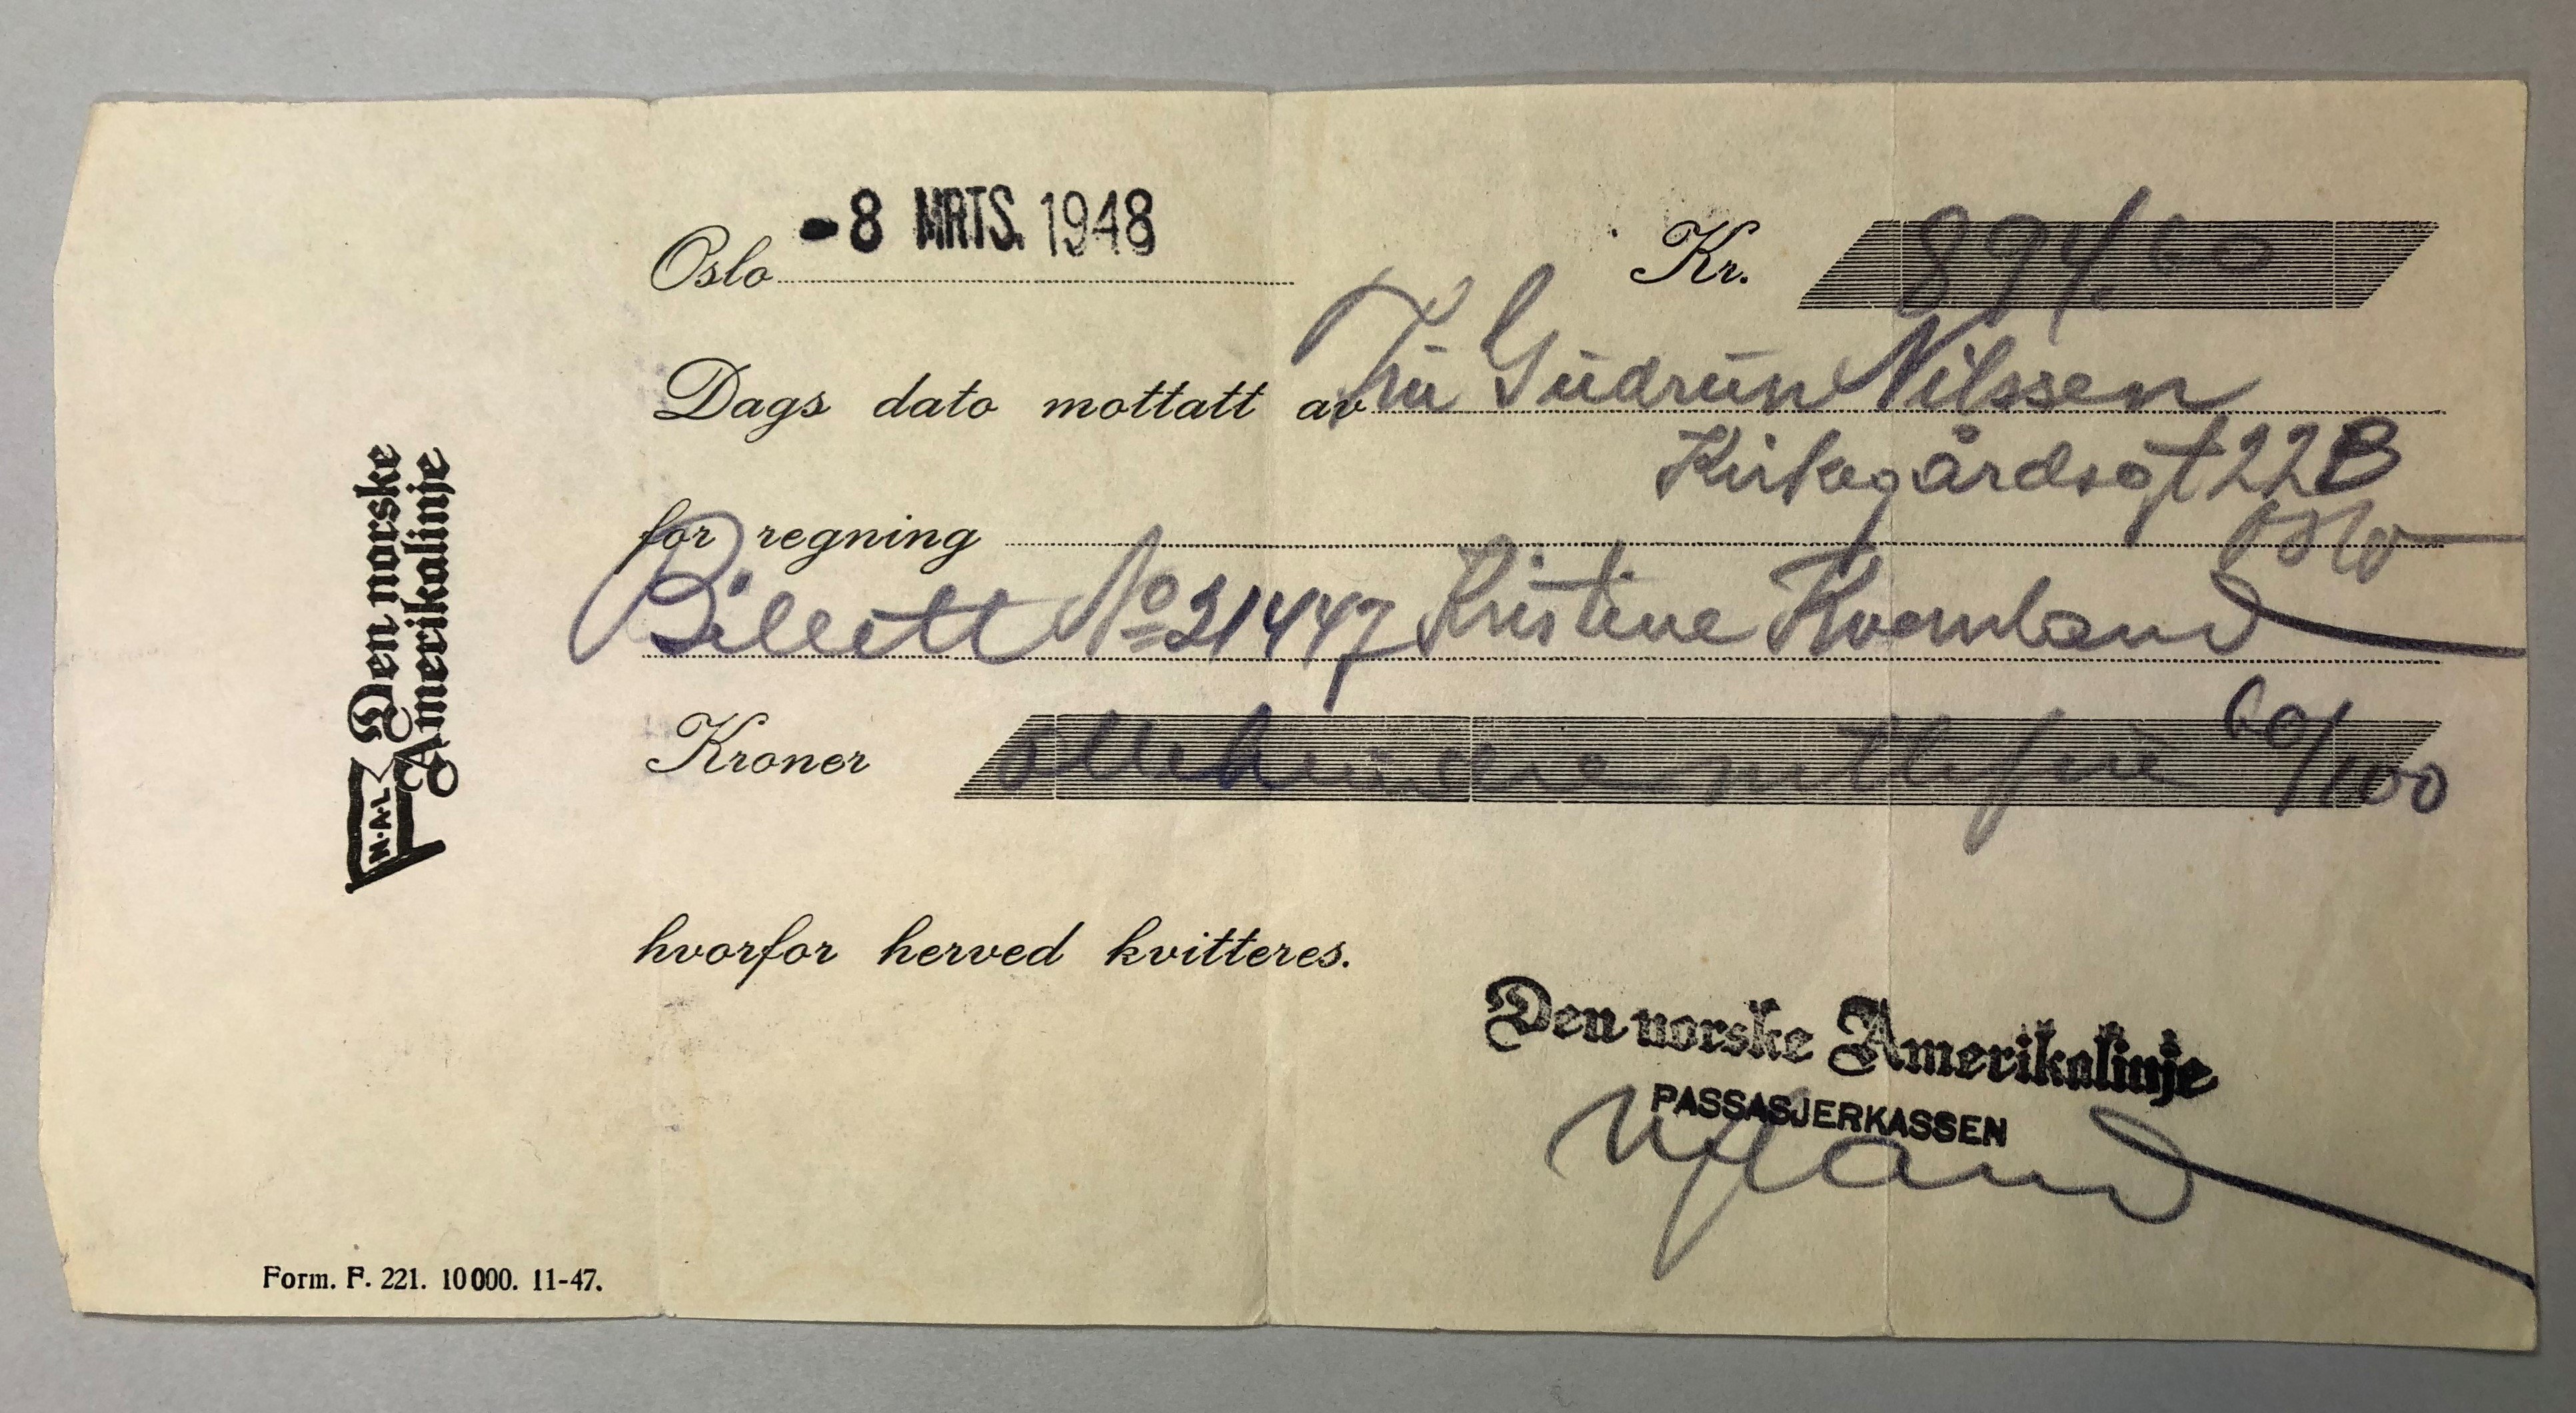 Den norske
Amerikalinje
N.A.L
Oslo -8 MRTS. 1948 Kr. 894/60
Dags dato mottatt av Fru Gudrun Nilssen
Kirkegårdsgt 22B
for regning Oslo
Billett No 21447 Kristine Kvernland
Kroner ottehundreognittifire 60/100
hvorfor herved kvitteres.
Den norske Amerikalinje
PASSASJERKASSEN
Form. F. 221. 10000. 11-47.